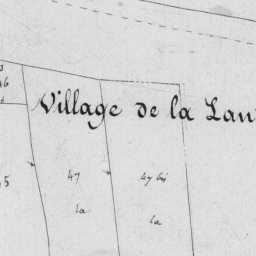 Village de la Lan
47
47 bis
la
la